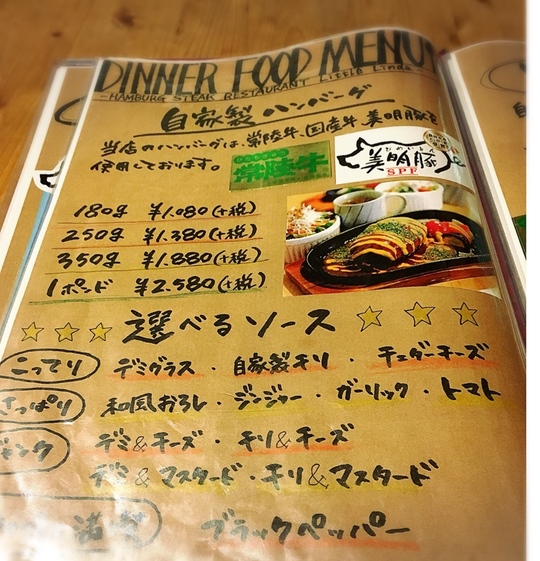 DINNER FOOD MENU
-HAMBURG STEAK RESTAURANT Little Linda-
自家製ハンバーグ
当店のハンバーグは、常陸牛、国産牛、美明豚を
使用しております。
常陸牛
美明豚
SPF
180g ¥1,080(+税)
250g ¥1,380(+税)
350g ¥1,880(+税)
1ポンド ¥2,580(+税)
選べるソース
こってり デミグラス・自家製チリ・チェダーチーズ
さっぱり 和風おろし・ジンジャー・ガーリック・トマト
ャンク デミ&チーズ・チリ&チーズ
デミ&マスタード・チリ&マスタード
ブラックペッパー